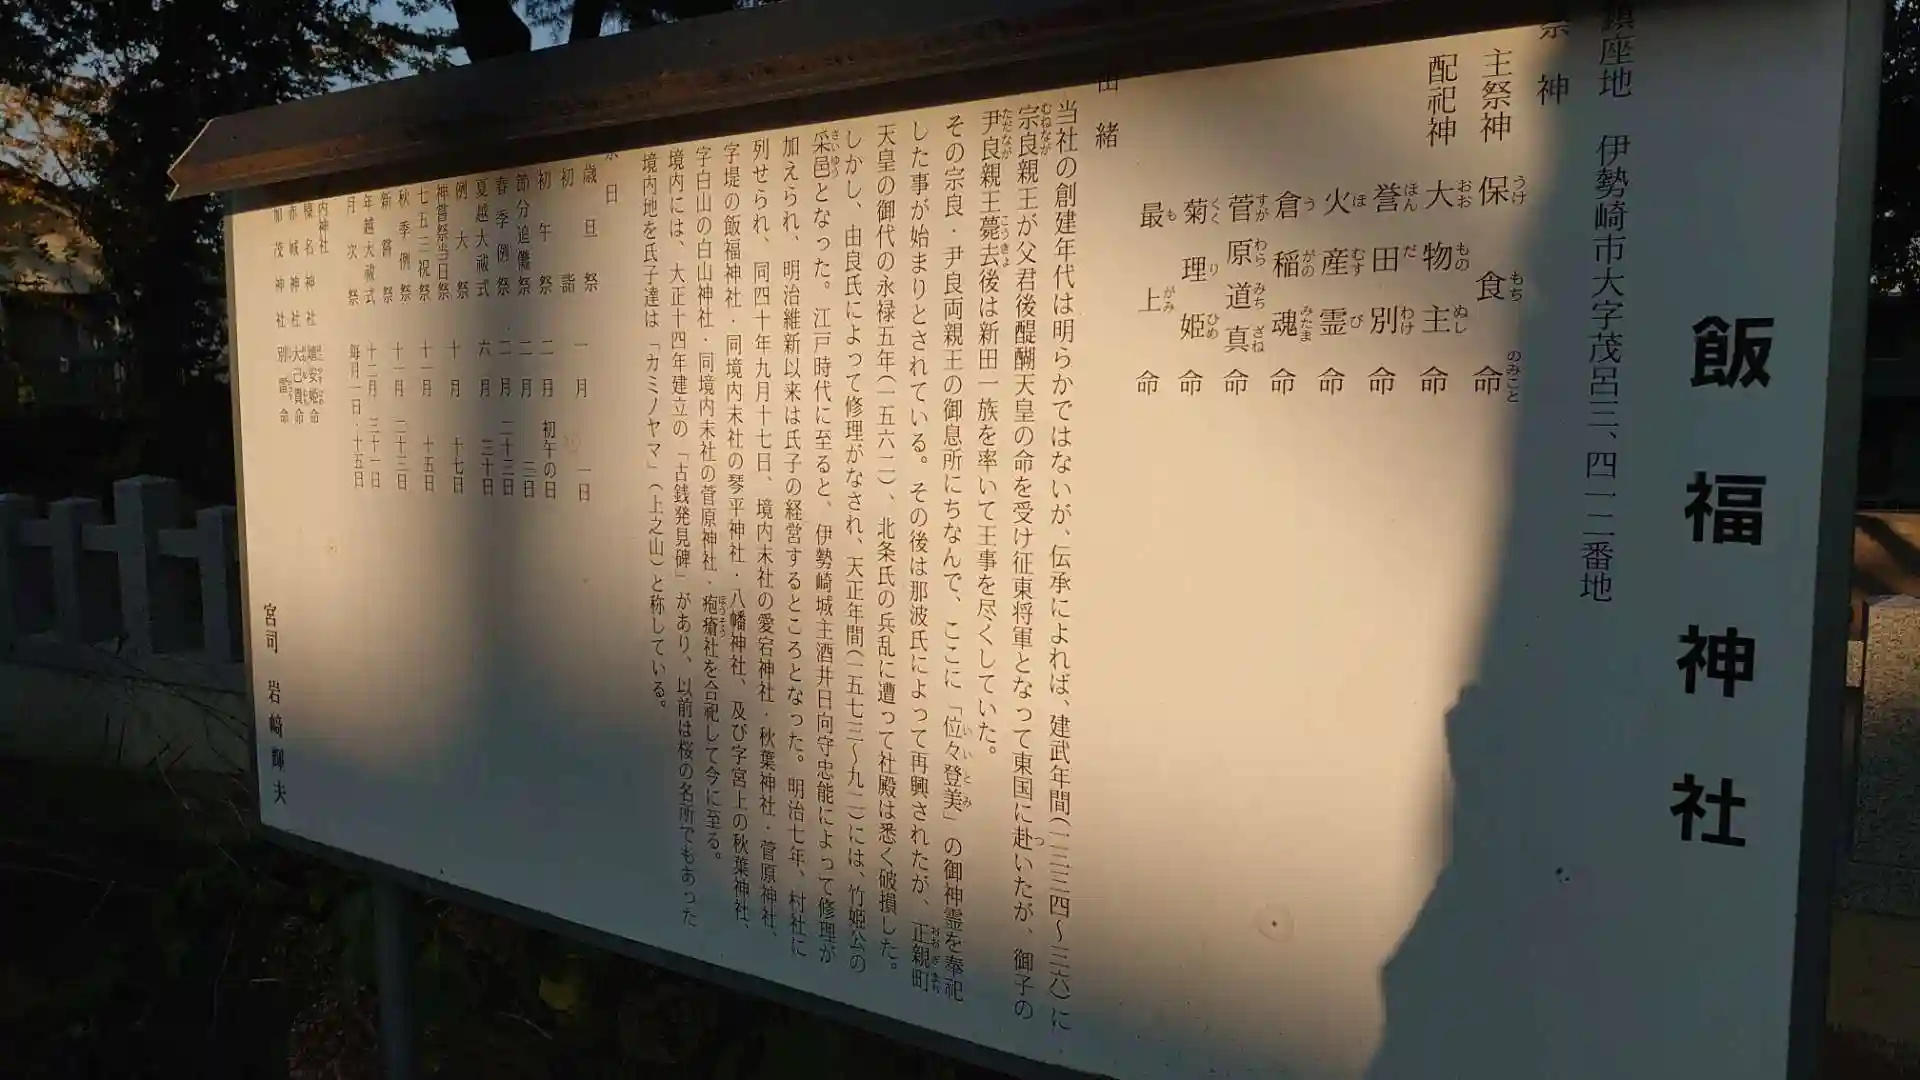 飯福神社
鎮座地 伊勢崎市大字茂呂三、四一二番地
祭神
主祭神 保食命
配祀神 大物主命
誉田別命
火産霊命
倉稲魂命
菅原道真命
菊理姫命
最上命
由緒
当社の創建年代は明らかではないが、伝承によれば、建武年間(一三三四〜三六)に
宗良親王が父君後醍醐天皇の命を受け征東将軍となって東国に赴いたが、御子の
尹良親王薨去後は新田一族を率いて王事を尽くしていた。
その宗良・尹良両親王の御息所にちなんで、ここに「位々登美」の御神霊を奉祀
した事が始まりとされている。その後は那波氏によって再興されたが、正親町
天皇の御代の永禄五年(一五六二)、北条氏の兵乱に遭って社殿は悉く破損した。
しかし、由良氏によって修理がなされ、天正年間(一五七三〜九二)には、竹姫公の
采邑となった。江戸時代に至ると、伊勢崎城主酒井日向守忠能によって修理が
加えられ、明治維新以来は氏子の経営するところとなった。明治七年、村社に
列せられ、同四十年九月十七日、境内末社の愛宕神社・秋葉神社・菅原神社、
字堤の飯福神社・同境内末社の琴平神社・八幡神社、及び字宮上の秋葉神社、
字白山の白山神社・同境内末社の菅原神社・疱瘡社を合祀して今に至る。
境内には、大正十四年建立の「古銭発見碑」があり、以前は桜の名所でもあった
境内地を氏子達は「カミノヤマ」(上之山)と称している。
祭日
歳旦祭 一月 一日
初詣
初午祭 二月 初午の日
節分追儺祭 二月 三日
春季例祭 二月 二十三日
夏越大祓式 六月 三十日
例大祭 十月 十七日
神嘗祭当日祭
七五三祝祭 十一月 十五日
秋季例祭
新嘗祭 十一月 二十三日
年越大祓式 十二月 三十一日
月次祭 毎月一日・十五日
境内神社
榛名神社 埴安姫命
赤城神社 大己貴命
加茂神社 別雷命
宮司 岩﨑輝夫